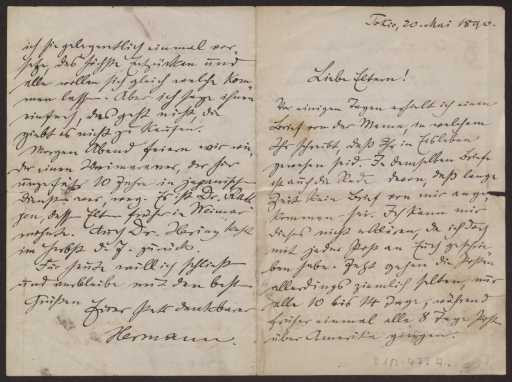 Tokio, 20. Mai 1890.
Liebe Eltern!
Vor einigen Tagen erhielt ich einen
Brief von der Mama, in welchem
Ihr schreibt daß Ihr in Eisleben
gewesen seid. In demselben Briefe
ist auch die Rede davon, daß lange
Zeit kein Brief von mir ange-
kommen sei. Ich kann mir
dieses nicht erklären, da ich doch
mit jeder Post an Euch geschrie-
ben habe. Jetzt gehen die Posten
allerdings ziemlich selten, nur
alle 10 bis 14 Tage, während
früher einmal alle 8 Tage Post
über Amerika gingen.
ich sie gelegentlich einmal vor-
setze, das höchste Entzücken und
alle wollen sich gleich welche kom-
men lassen. Aber ich sage ihnen
einfach, das geht nicht, das
giebt es nicht zu kaufen.
Morgen Abend feiern wir wie-
der einen Weimaraner, der hier
ungefähr 10 Jahre in japanischen
Diensten war, weg. Es ist Dr.
dessen Eltern früher in Weimar
wohnte. Auch Dr. Hering kehrt
im Herbst d. J. zurück.
Für heute will ich schließen
und verbleibe mit den besten
Grüßen
Euer stets dankbarer
Hermann.